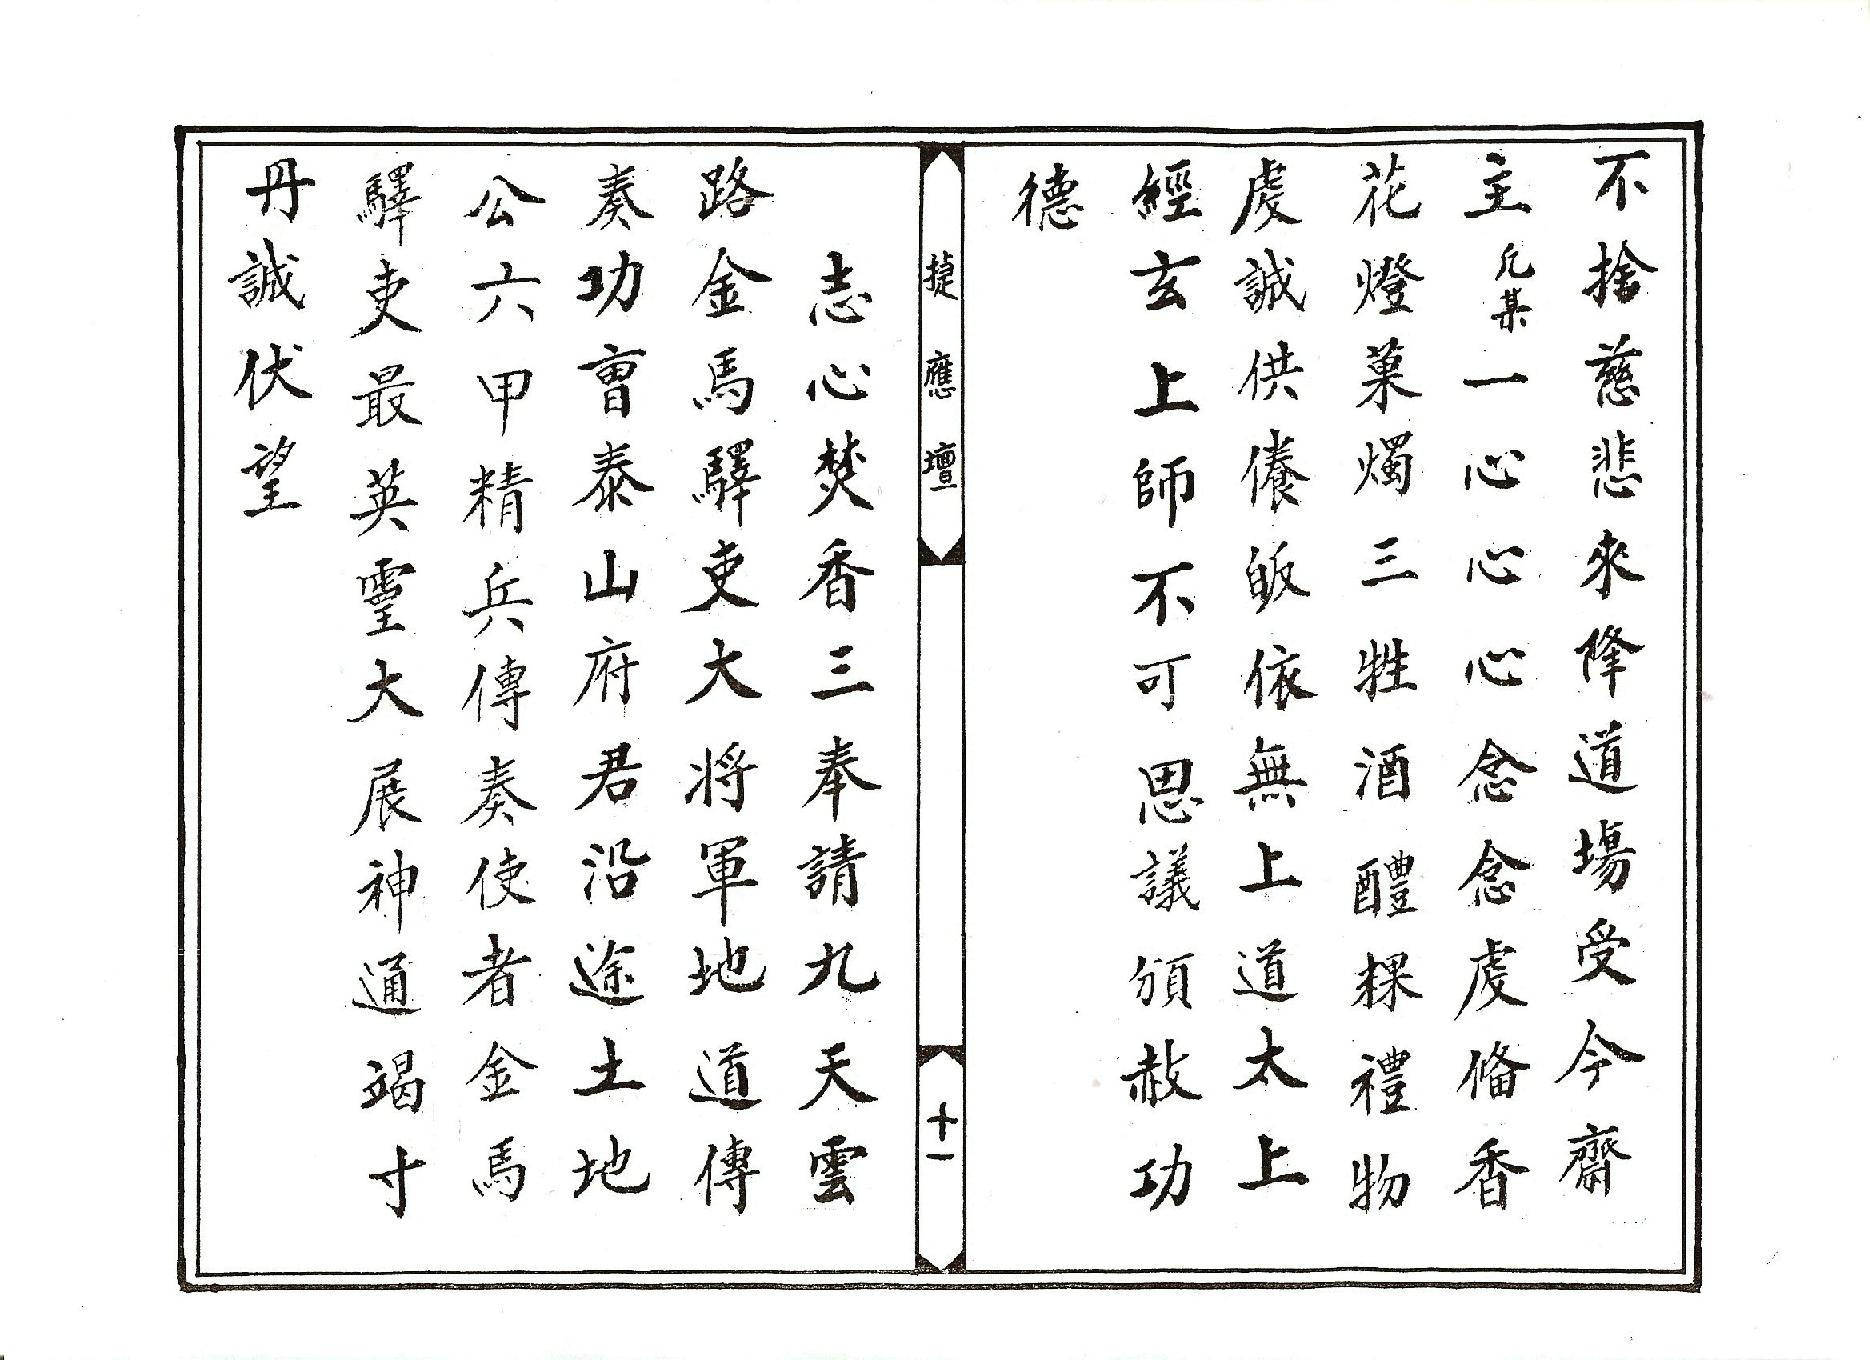 不捨慈悲來降道場受今齋
主凡某一心心心念念虔俻香
花燈菓燭三牲酒醴粿禮物
虔誠供儀皈依無上道太上
經玄上師不可思議頒赦功
德
捷應壇
十一
志心焚香三奉請九天雲
路金馬驛吏大將軍地道傳
奏功曹泰山府君沿途土地
公六甲精兵傳奏使者金馬
驛吏最英靈大展神通竭寸
丹誠伏望